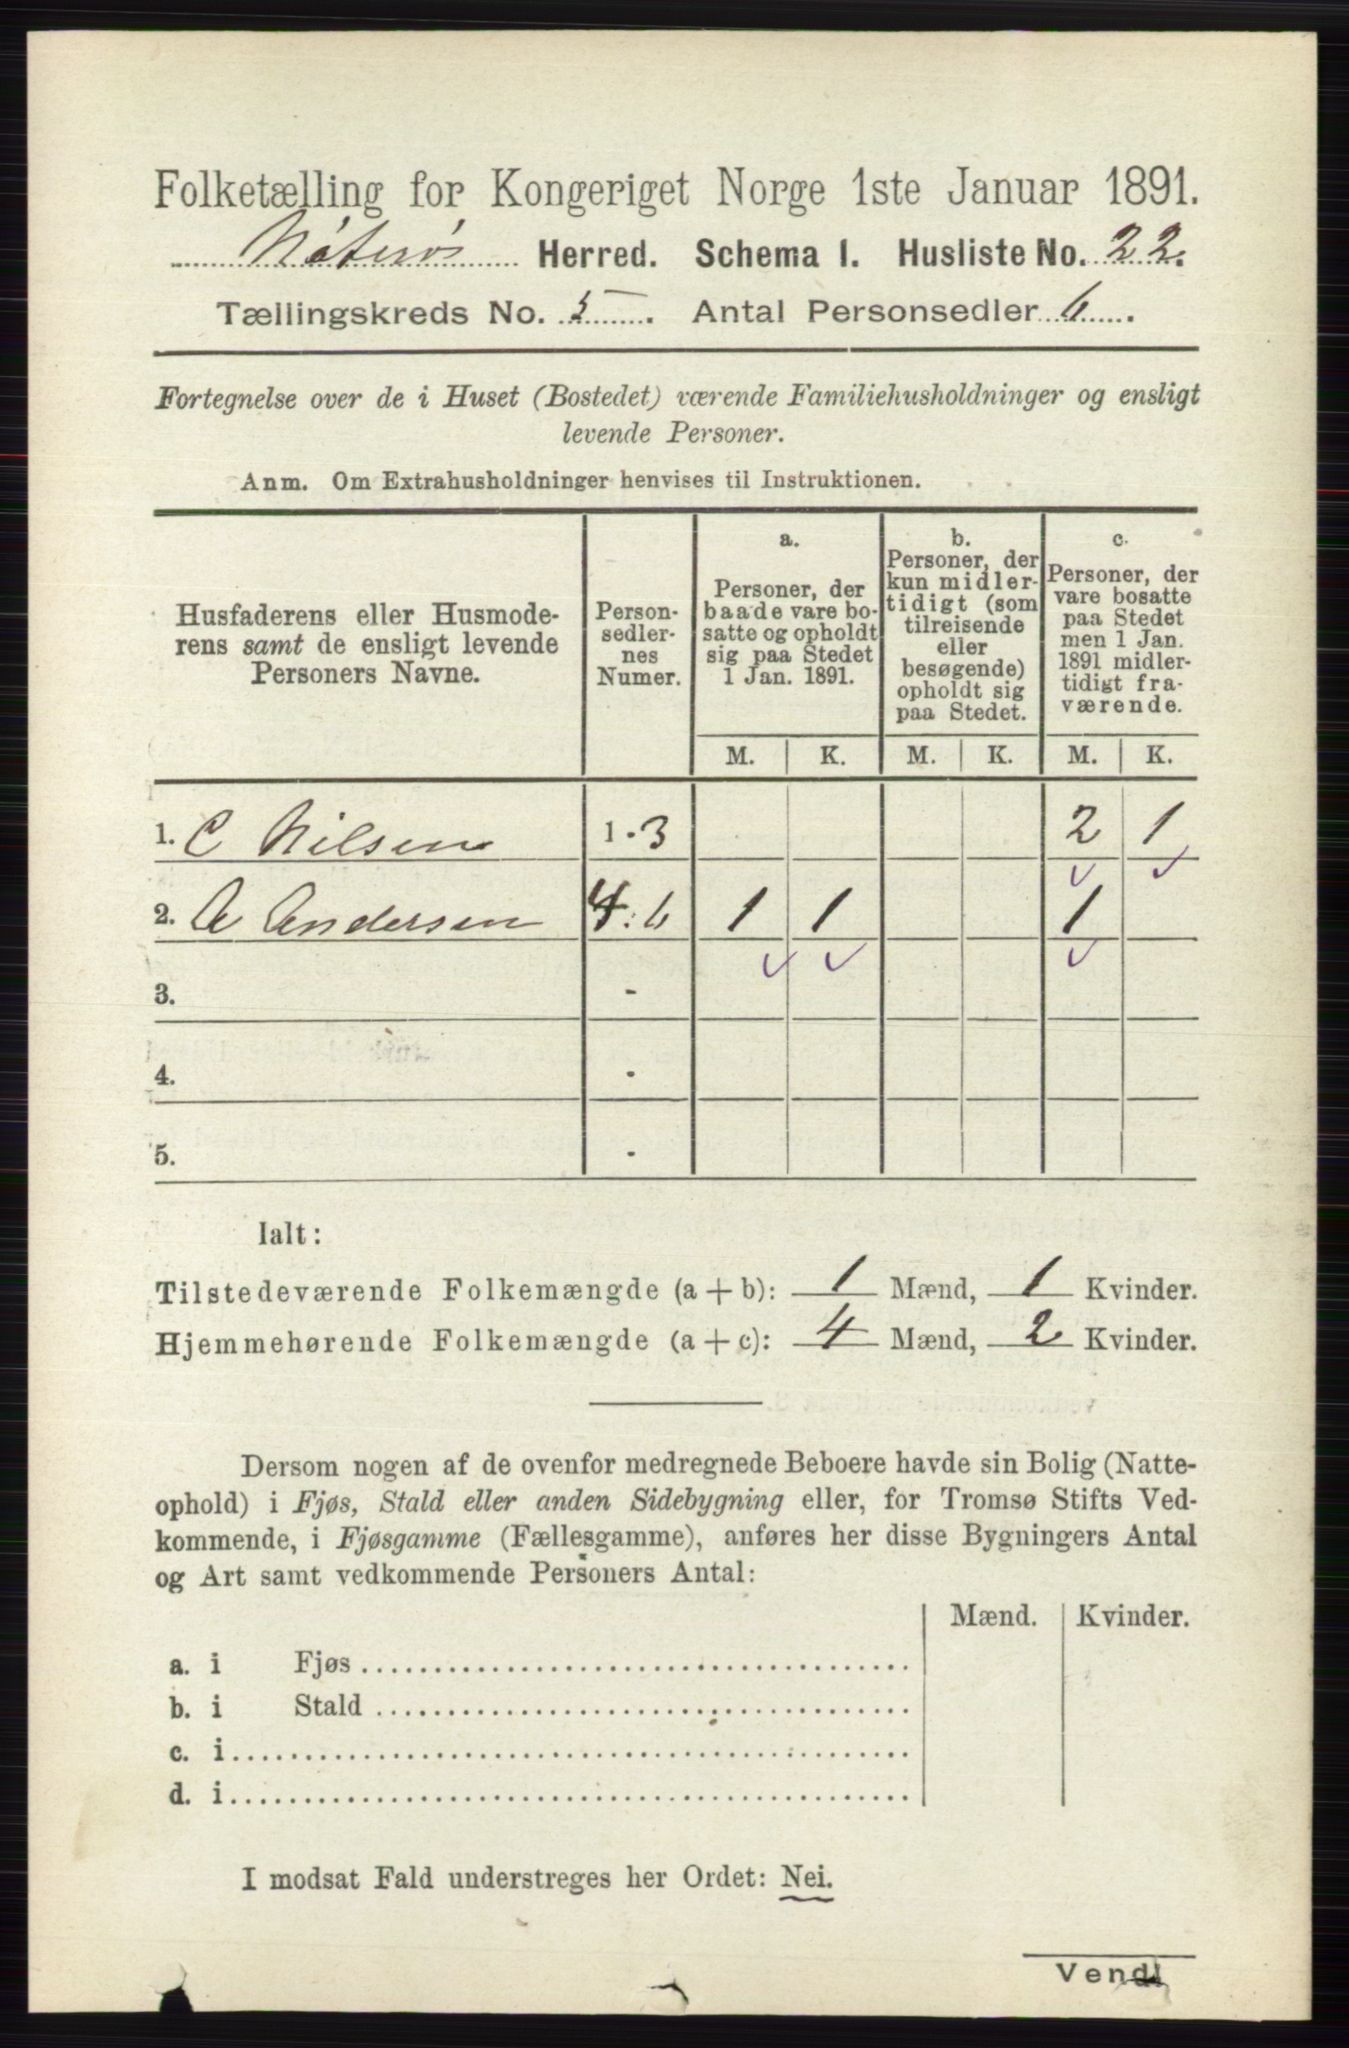 Folketælling for Kongeriget Norge 1ste Januar 1891.
Nøterø Herred. Schema I. Husliste No. 22.
Tællingskreds No. 5. Antal Personsedler 6.
Fortegnelse over de i Huset (Bostedet) værende Familiehusholdninger og ensligt
levende Personer.
Anm. Om Extrahusholdninger henvises til Instruktionen.
Husfaderens eller Husmode-
rens samt de ensligt levende
Personers Navne.
Person-
sedler-
nes
Numer.
a.
Personer, der
baade vare bo-
satte og opholdt
sig paa Stedet
1 Jan. 1891.
b.
Personer, der
kun midler-
tidigt (som
tilreisende
eller
besøgende)
opholdt sig
paa Stedet.
c.
Personer, der
vare bosatte
paa Stedet
men 1 Jan.
1891 midler-
tidigt fra-
værende.
M. K. M. K. M. K.
1. C Nilsen 1-3 2 1
2. A Andersen 4-6 1 1 1
3. -
4. -
5. -
Ialt:
Tilstedeværende Folkemængde (a + b): 1 Mænd, 1 Kvinder.
Hjemmehørende Folkemængde (a + c): 4 Mænd, 2 Kvinder.
Dersom nogen af de ovenfor medregnede Beboere havde sin Bolig (Natte-
ophold) i Fjøs, Stald eller anden Sidebygning eller, for Tromsø Stifts Ved-
kommende, i Fjøsgamme (Fællesgamme), anføres her disse Bygningers Antal
og Art samt vedkommende Personers Antal:
Mænd. Kvinder.
a. i Fjøs
b. i Stald
c. i
d. i
I modsat Fald understreges her Ordet: Nei.
Vend!